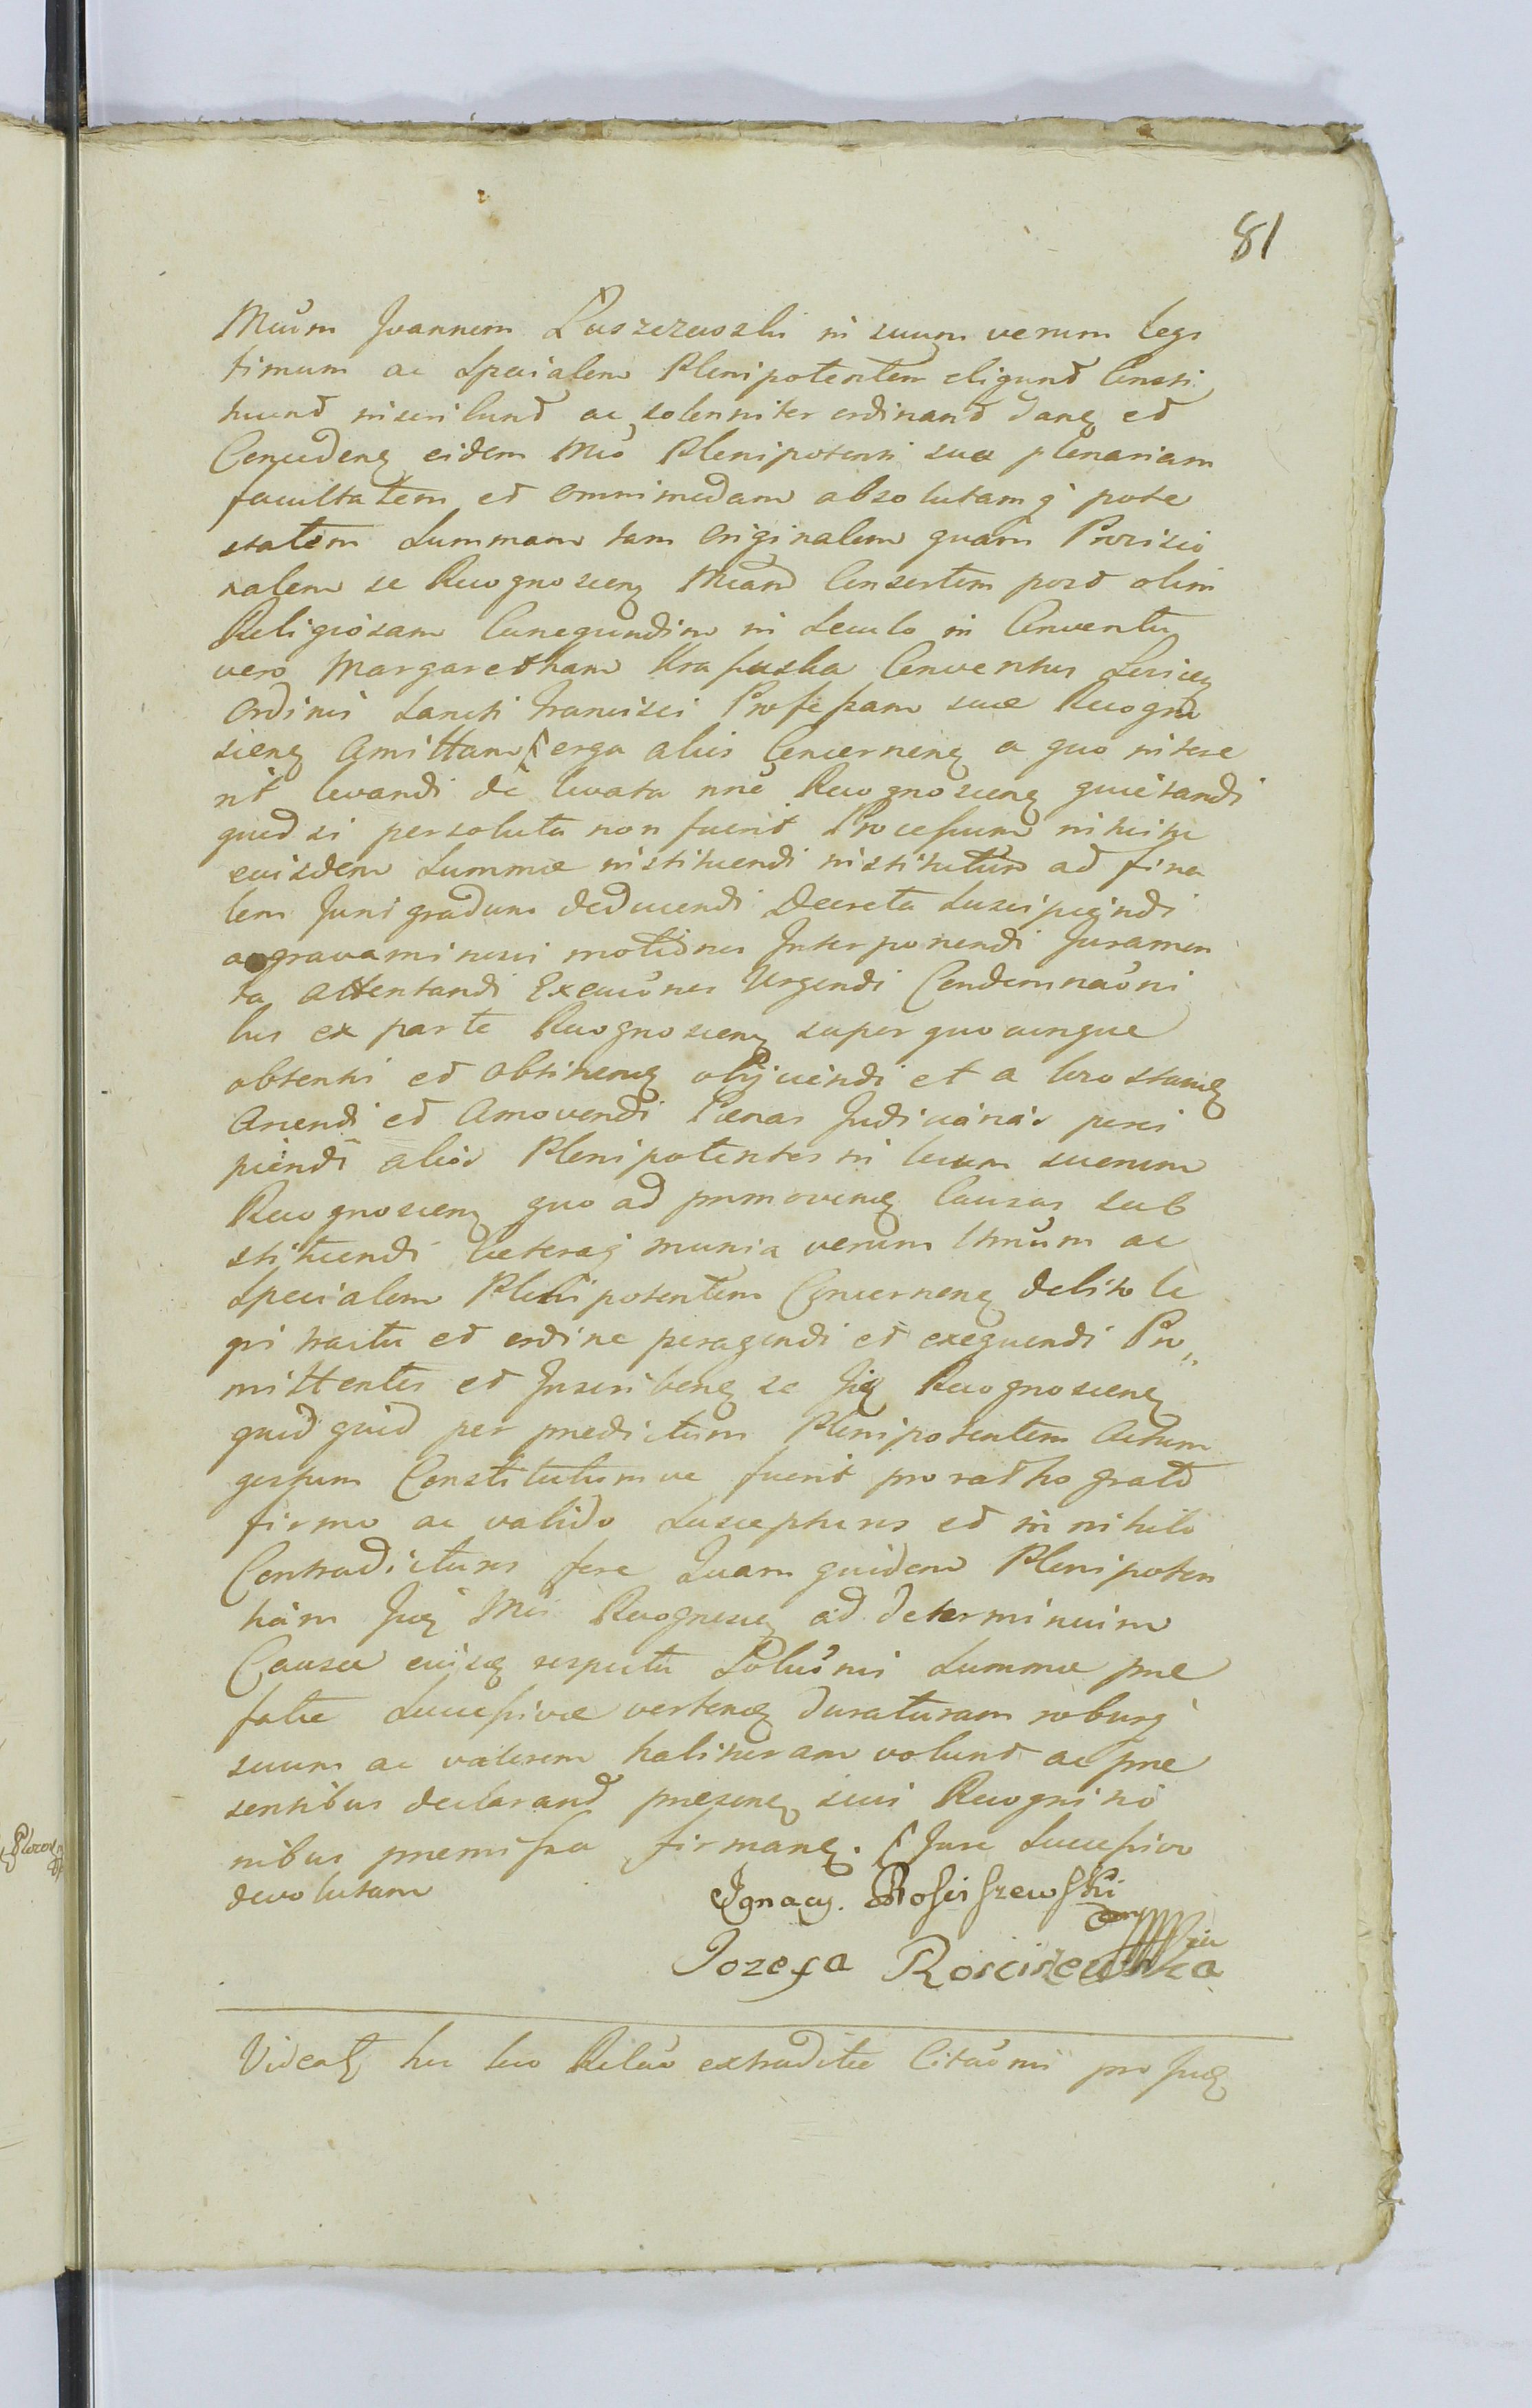 81
Mcum Joannem Paszczewski in suum verum legi
timum ac Specialem Plenipotentem eligunt Consti
tuunt inscribunt ac solenniter ordinant Danẽ et
Concedenẽ eidem Mco Plenipotenti suo plenariam
facultatem et omnimodam absolutamq pote
statem Summam tam Originalem quam Provisio
nalem se Recognoscenẽ Mcam Consortem post olim
Religiosam Cunegundim in Seculo in Conventu
vero Margaretham Conventus
Ordinis Sancti Francisci Professam suae Recogno
scienẽ Amittam erga alios Concernenẽ a quo interse
rit levandi de levata nne Recognoscenẽ quietandi
quod si persoluta non fuerit Processum intuitu
eiusdem Summae instituendi institutum ad fina
lem Juris gradum deducendi Decreta Suscipiendi
aggravaminisvi motiones Interponendi Juramen
ta Attentandi Execuones Urgendi Condemnaoni
bus ex parte Recognoscenẽ super quocunque
obtentis et obtinenẽ objiciendi et a loco standi
Arcendi et Amovendi Paenas Judiciarias perci
piendi alios Plenipotentes in locum suorum
Recognoscenẽ quo ad promovenẽ Causas sub
stituendi Caeteraq munia verum ltmum ac
Specialem Plenipotentem Concernenẽ debito le
gis tractu et ordine peragendi et exequendi Pro„
mittentes et Inscribenẽ se Recognoscenẽ
quid quid per predictum Plenipotentem Actum
gestum Constitutumve fuerit pro ratho grato
firmo ac valido Suscepturos et in nihilo
Contradicturos fore Quam quidem Plenipoten
tiam Mci Recognoscẽ ad determinium
Causae eiusẽ respectu Soluonis Summae prae
fatae Successivae vertenẽ duraturam roburq
suum ac valorem habituram volunt ac prae
sentibus declarant praesenẽ sui Recognitio
nibus premissa firmanẽ. Jure Successivo
devolutam
Ignacy. Rosciszewski
Jozefa Rosciszewska
Videatẽ hic loco Relao extraditae Citaonis pro